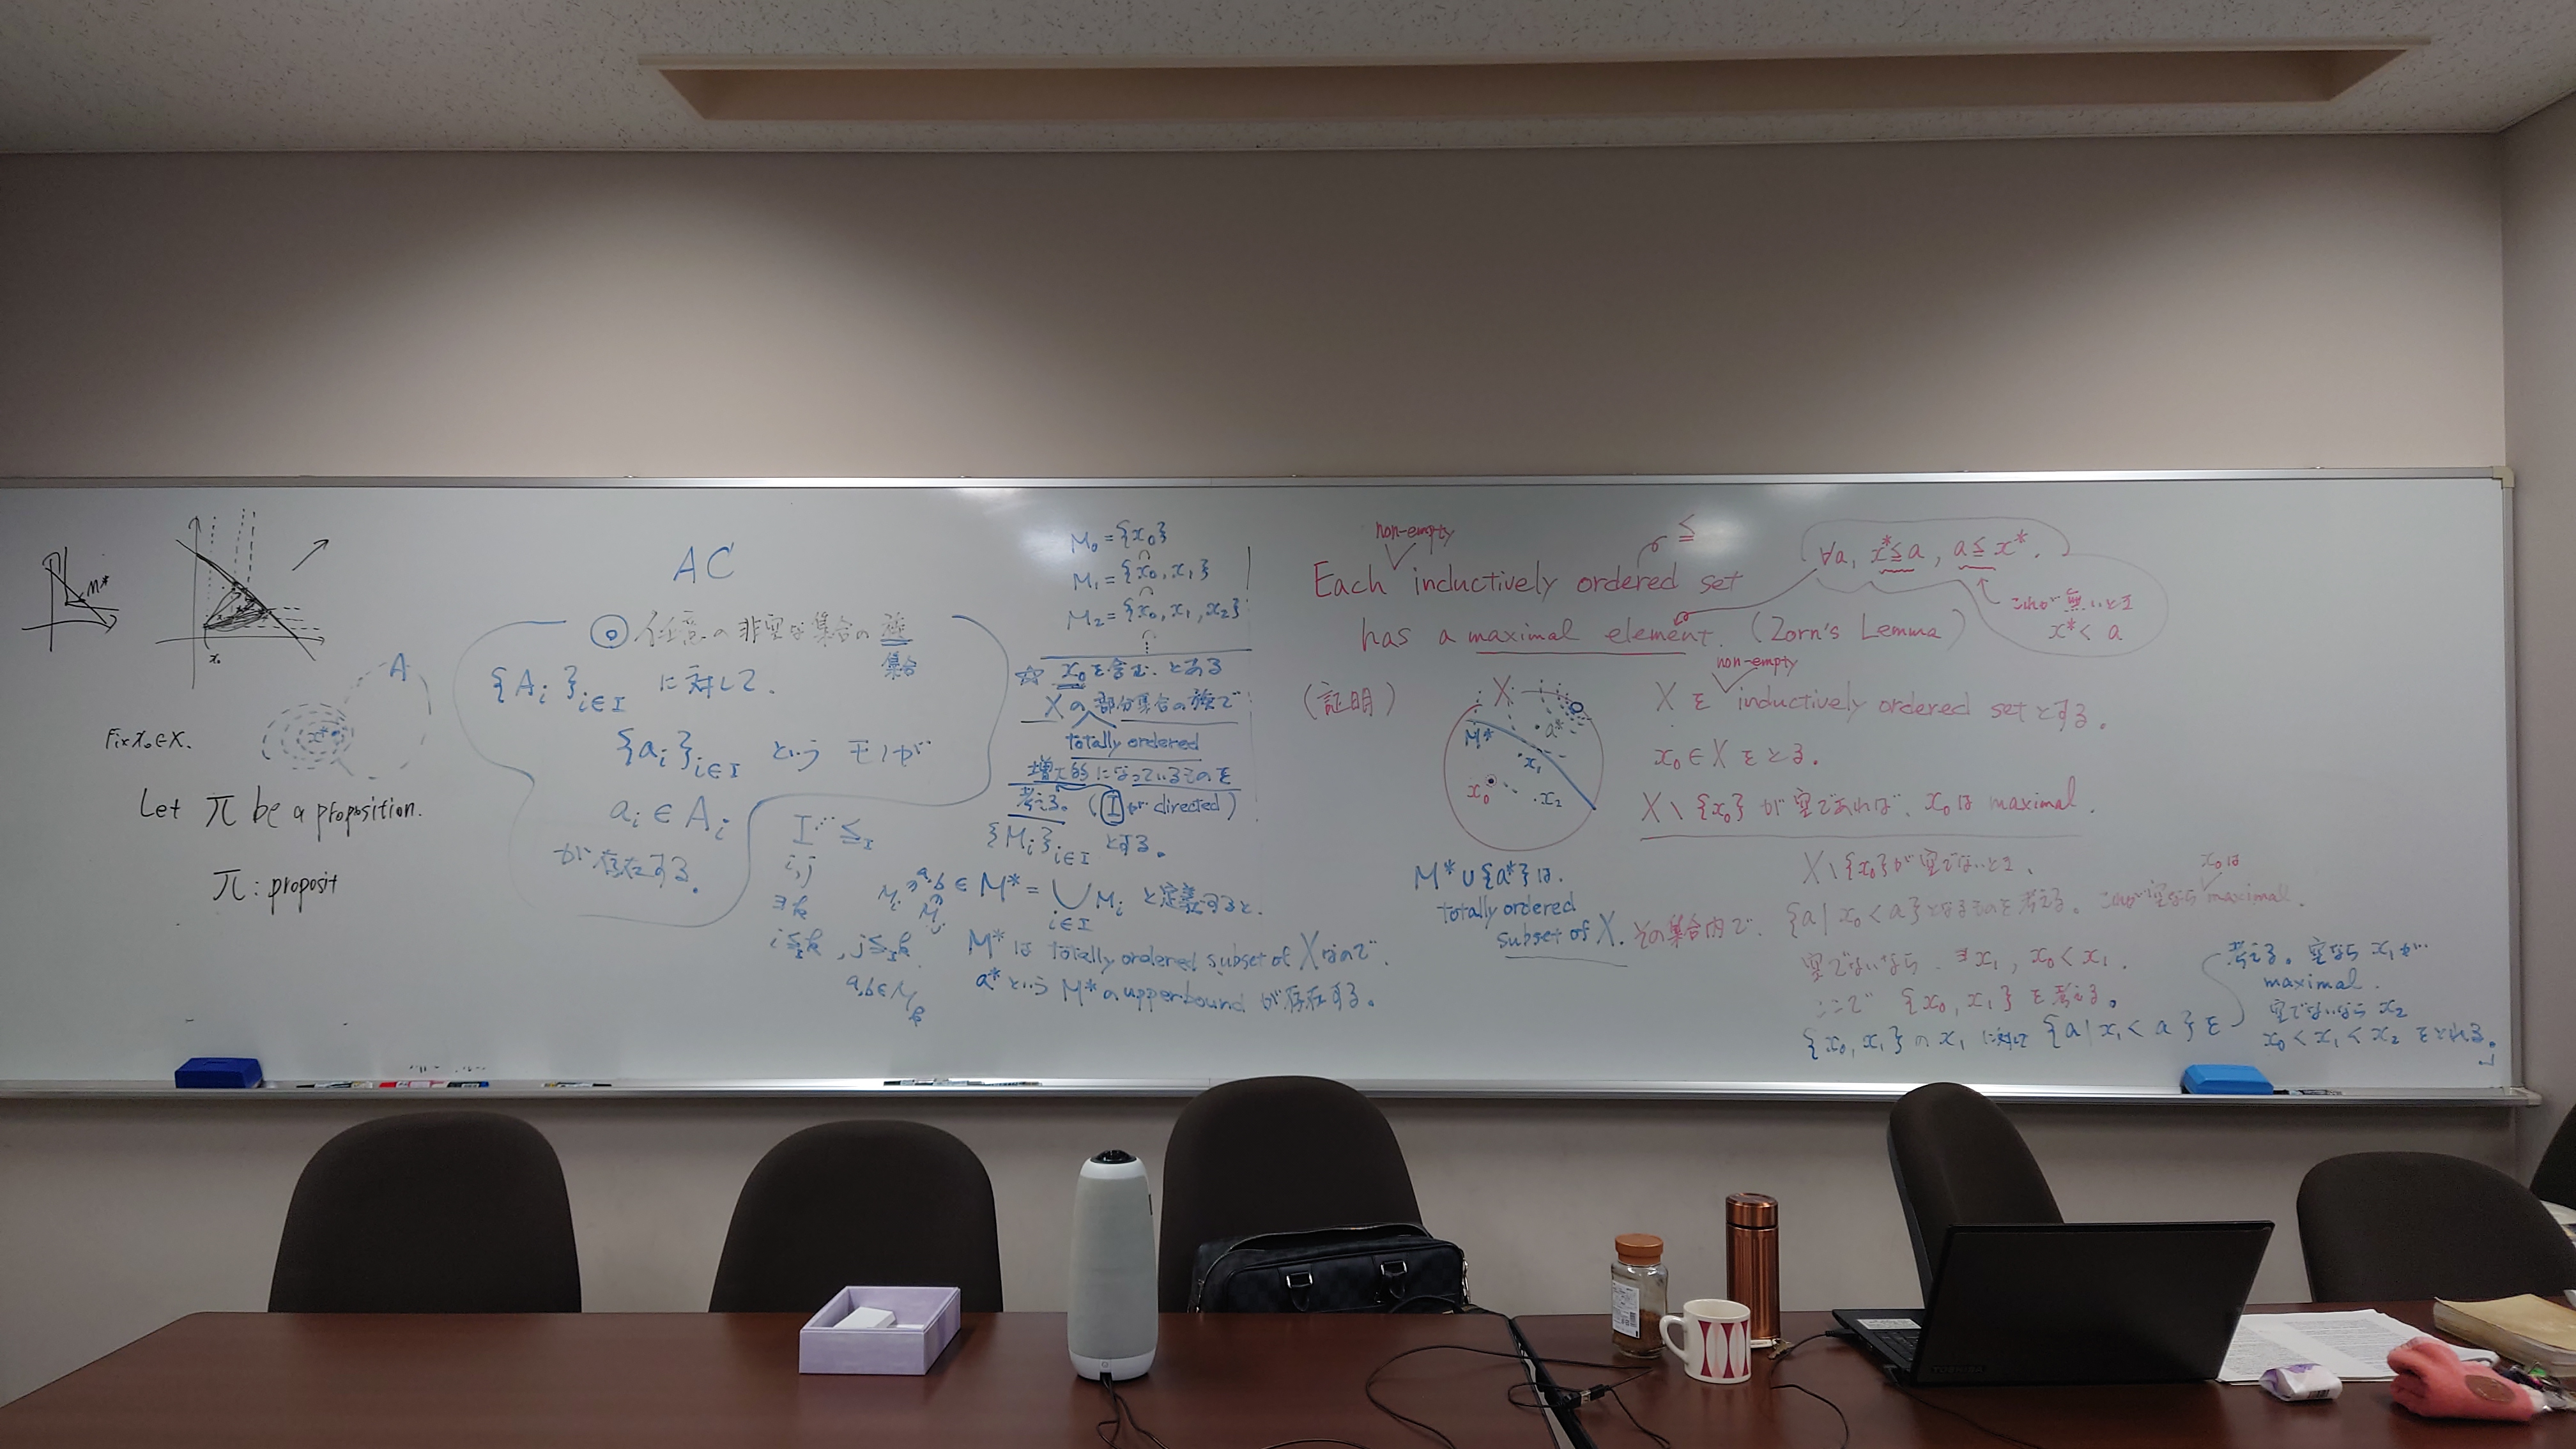 M*
x₀
A
x*
Fix x₀∈X.
Let π be a proposition.
π : proposit
AC
◎ 任意の非空な集合の族
集合
{Aᵢ}ᵢ∈I に対して、
{aᵢ}ᵢ∈I という モノが
aᵢ ∈ Aᵢ
が存在する。
I ≦_I
i,j
∃k
i≦_I k , j≦_I k
a,b∈M_k
M₀ = {x₀}
∩
M₁ = {x₀, x₁}
∩
M₂ = {x₀, x₁, x₂}
∩
⋮
☆ x₀を含む、とある
Xの部分集合の族で
totally ordered
増大的になっているものを
考える。(I が directed)
{Mᵢ}ᵢ∈I とする。
a,b ∈ M* = ∪ Mᵢ と定義すると、
i∈I
Mᵢ
Mⱼ
M* は totally ordered subset of X なので、
a* という M* の upper bound が存在する。
non-empty
≦
Each inductively ordered set
has a maximal element. (Zorn's Lemma)
∀a, x*≦a, a≦x*.
これが無いとき
x* < a
(証明)
X
M*
a*
x₁
x₀
x₂
M*∪{a*}は、
totally ordered
subset of X.
non-empty
X を inductively ordered set とする。
x₀ ∈ X をとる。
X \ {x₀} が空であれば、x₀ は maximal.
X \ {x₀} が空でないとき、
x₀は
その集合内で、{a | x₀ < a} となるものを考える。これが空なら maximal.
空でないなら、∃x₁, x₀ < x₁.
ここで {x₀, x₁} を考える。
{x₀, x₁} の x₁ に対して {a | x₁ < a} を
考える。空なら x₁が
maximal.
空でないなら x₂
x₀ < x₁ < x₂ をとれる。